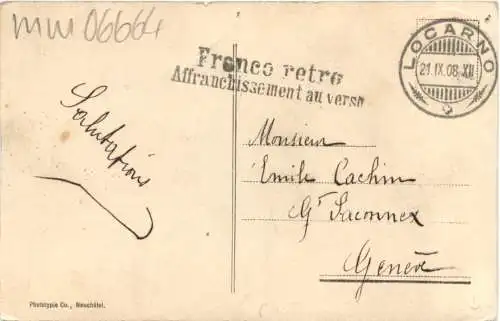 mm 06664
Franco retro
Affranchissement au verso
LOCARNO
21.IX.08-XII
2
Salutations
Monsieur
Emile Cachin
Gd Saconnex
Genève
Phototypie Co., Neuchâtel.